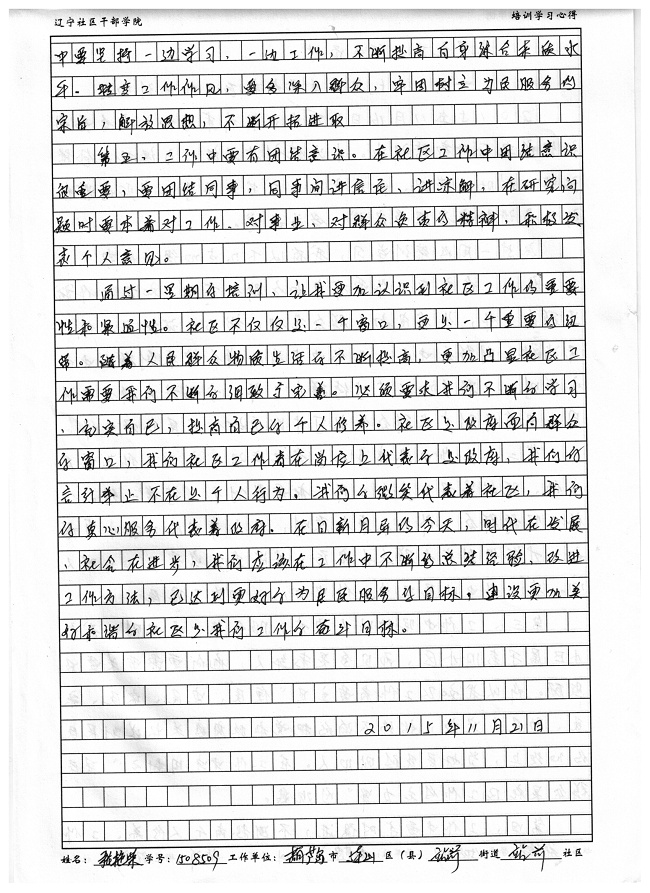 辽宁社区干部学院 培训学习心得
中要坚持一边学习，一边工作，不断提高自身综合素质水
平。转变工作作风，要多深入群众，牢固树立为民服务的
宗旨，解放思想，不断开拓进取
第五、工作中要有团结意识。在社区工作中团结意识
很重要，要团结同事，同事间讲信任、讲谅解，在研究问
题时要本着对工作、对事业、对群众负责的精神，积极发
表个人意见。
通过一星期的培训，让我更加认识到社区工作的重要
性和紧迫性。社区不仅仅是一个窗口，更是一个重要的纽
带。随着人民群众物质生活的不断提高，更加凸显社区工
作需要我们不断的细致于完善。必须要求我们不断的学习
、充实自己，提高自己的个人修养。社区是政府面向群众
的窗口，我们社区工作者在岗位上代表的是政府，我们的
言行举止不在是个人行为。我们的微笑代表着社区，我们
的真心服务代表着政府。在日新月异的今天，时代在发展
、社会在进步，我们应该在工作中不断的总结经验、改进
工作方法，已达到更好的为居民服务的目标。建设更加美
好和谐的社区是我们工作的奋斗目标。
2015年11月21日
姓名： 学号：1508509 工作单位：葫芦岛市连山区（县）站前街道站前社区